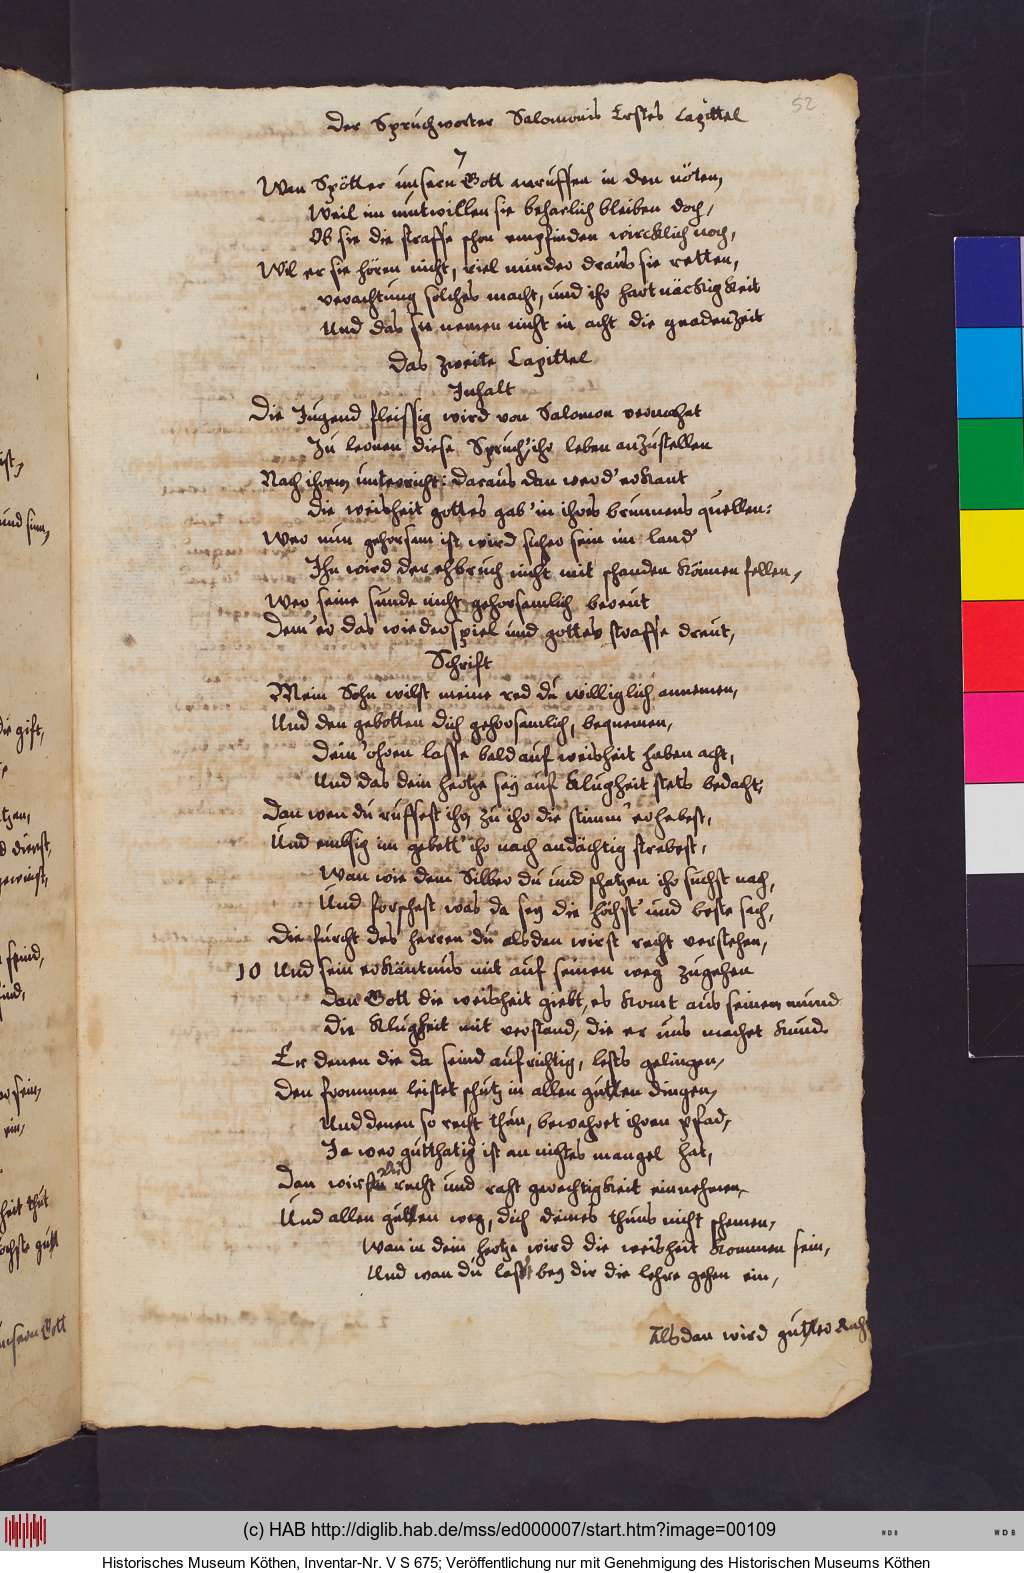 52
Der Spruchworter Salomonis Erstes Capittel
7
Wan Spötter unsern Gott anruffen in den nöten,
Weil im mutwillen sie beharlich bleiben doch,
Ob sie die straffe schon empfinden wircklich noch,
Wil er sie hören nicht, viel minder draus sie retten,
verachtung solches macht, und ihr hartnäckigkeit
Und das sie nemen nicht in acht die gnadenzeit
Das zweite Capittel
Inhalt
Die Jugend fleissig wird von Salomon vermahnt
Zu lernen diese Spruch', ihr leben anzustellen
Nach ihrem unterricht: daraus dan werd' erkant
die weisheit gottes gab' in ihres brunnens quellen:
Wer nun gehorsam ist, wird sicher sein im land'
Ihn wird der ehbruch nicht mit schanden können fellen,
Wer seine sunde nicht gehorsamlich bereut
Dem' er das wiederspiel und gottes straffe dreut,
Schrift
Mein Sohn wilst meine red du williglich annemen,
Und den gebotten dich gehorsamlich, bequemen,
Dein' ohren lasse bald auf weisheit haben acht,
Und das dein hertze sey auf klugheit stets bedacht;
Dan wen du ruffest ihr, zu ihr die stimm' erhebest,
Und embsig im gebett' ihr nach andächtig strebest,
Wan wie dem Silber du und schatzen ihr suchst nach,
Und forschest was da sey die höchst' und beste sach,
Die furcht des herren du alsdan wirst recht verstehen,
10 Und sein erkäntnus mit auf seinen weg zugehen
Dan Gott die weisheit giebt, es komt aus seinem mund
die klugheit mit verstand, die er uns machet kund.
Er denen die da seind aufrichtig, lests gelingen,
Den frommen leistet schutz in allen gutten dingen,
Und denen so recht thun, bewahret ihren pfad,
Ja wer gutthatig ist an nichtes mangel hat,
Dan wirst du recht und raht gerechtigkeit einnehmen,
Und allen gutten weg, dich deines thuns nicht schemen,
Wan in dein hertze wird die weisheit kommen sein,
Und wan du lest bey dir die lehre gehen ein,
Alsdan wird gutter
ist,
und sinn,
die gift,
dienst,
gewinst,
feind,
sein,
ein,
heit thut
unsern Gott
(c) HAB http://diglib.hab.de/mss/ed000007/start.htm?image=00109
WDB
WDB
Historisches Museum Köthen, Inventar-Nr. V S 675; Veröffentlichung nur mit Genehmigung des Historischen Museums Köthen